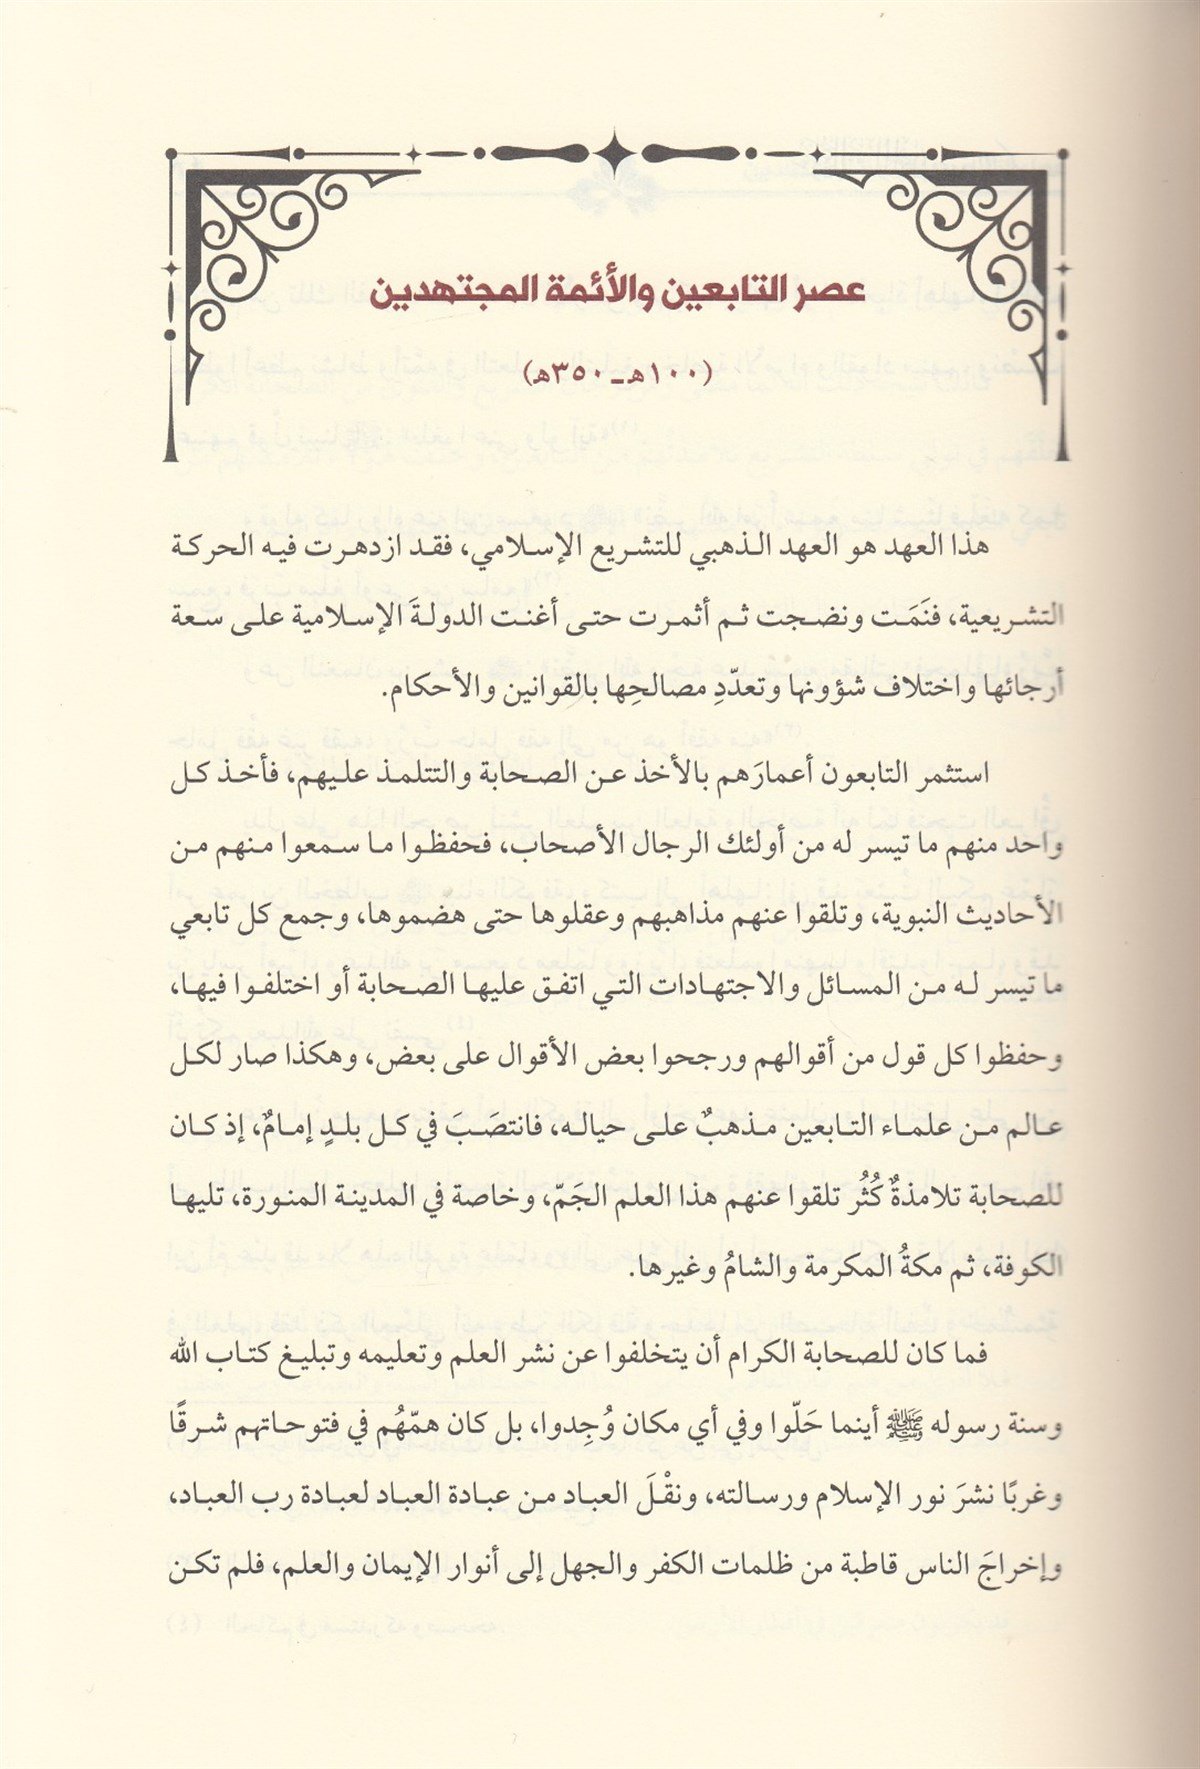 عصر التابعين والأئمة المجتهدين
(١٠٠هـ - ٣٥٠هـ)
هذا العهد هو العهد الذهبي للتشريع الإسلامي، فقد ازدهرت فيه الحركة
التشريعية، فنَمَت ونضجت ثم أثمرت حتى أغنت الدولةَ الإسلامية على سعة
أرجائها واختلاف شؤونها وتعدّدِ مصالحِها بالقوانين والأحكام.
استثمر التابعون أعمارَهم بالأخذ عن الصحابة والتتلمذ عليهم، فأخذ كل
واحد منهم ما تيسر له من أولئك الرجال الأصحاب، فحفظوا ما سمعوا منهم من
الأحاديث النبوية، وتلقوا عنهم مذاهبهم وعقلوها حتى هضموها، وجمع كل تابعي
ما تيسر له من المسائل والاجتهادات التي اتفق عليها الصحابة أو اختلفوا فيها،
وحفظوا كل قول من أقوالهم ورجحوا بعض الأقوال على بعض، وهكذا صار لكل
عالم من علماء التابعين مذهبٌ على حياله، فانتصَبَ في كل بلدٍ إمامٌ، إذ كان
للصحابة تلامذةٌ كُثُر تلقوا عنهم هذا العلم الجَمّ، وخاصة في المدينة المنورة، تليها
الكوفة، ثم مكةُ المكرمة والشامُ وغيرها.
فما كان للصحابة الكرام أن يتخلفوا عن نشر العلم وتعليمه وتبليغ كتاب الله
وسنة رسوله ﷺ أينما حَلّوا وفي أي مكان وُجِدوا، بل كان همّهُم في فتوحاتهم شرقًا
وغربًا نشرَ نور الإسلام ورسالته، ونقْلَ العباد من عبادة العباد لعبادة رب العباد،
وإخراجَ الناس قاطبة من ظلمات الكفر والجهل إلى أنوار الإيمان والعلم، فلم تكن